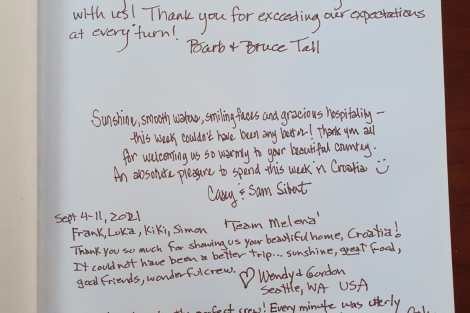 with us! Thank you for exceeding our expectations
at every turn!
Barb & Bruce Tall
Sunshine, smooth waters, smiling faces and gracious hospitality -
this week couldn't have been any better! Thank you all
for welcoming us so warmly to your beautiful country.
An absolute pleasure to spend this week in Croatia
Casey & Sam Sibert
Sept 4-11, 2021
Frank, Luka, Kiki, Simon 'Team Melena'
Thank you so much for showing us your beautiful home, Croatia!
It could not have been a better trip... sunshine, great food,
good friends, wonderful crew. ♡ Wendy & Gordon
Seattle, WA USA
perfect crew! Every minute was utterly